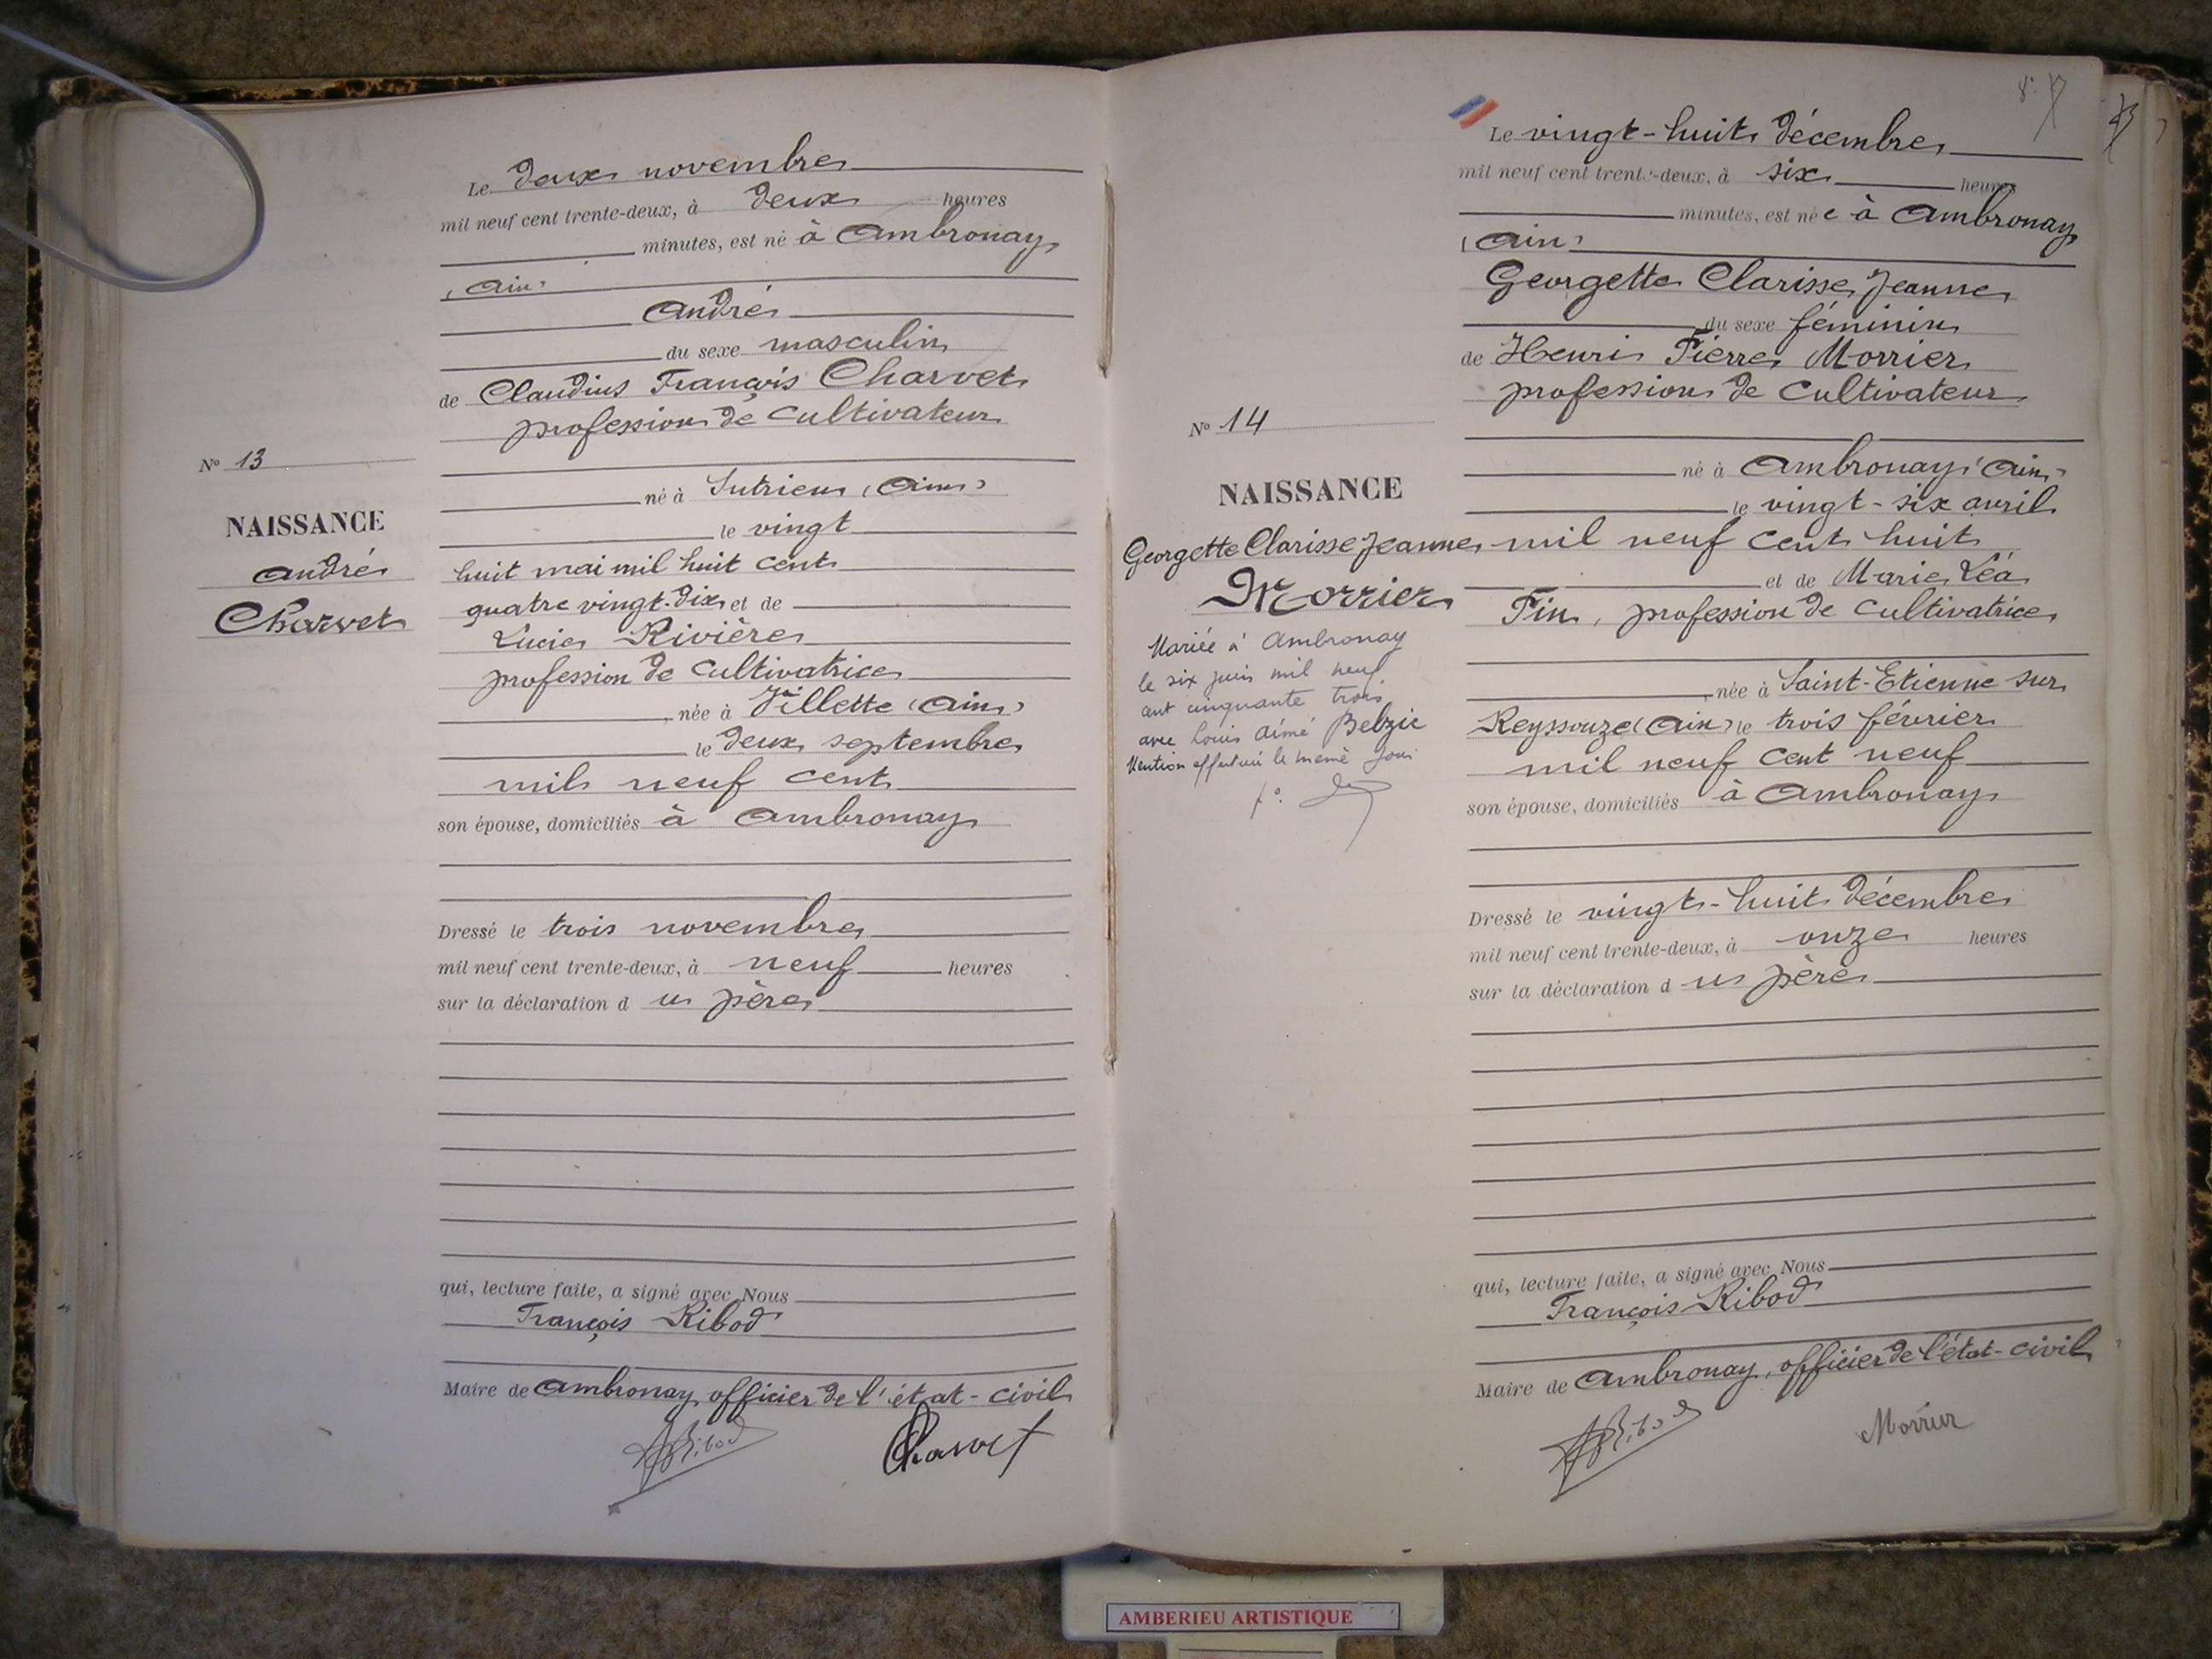 Le deux novembre
mil neuf cent trente-deux, à deux heures
minutes, est né à Ambronay
(Ain)
André
du sexe masculin
de Claudius François Charvet
profession de cultivateur
né à Sutrieu (Ain)
le vingt
huit mai mil huit cent
quatre vingt-dix et de
Lucie Rivière
profession de cultivatrice
, née à Villette (Ain)
le deux septembre
mil neuf cent
son épouse, domiciliés à Ambronay
Dressé le trois novembre
mil neuf cent trente-deux, à neuf heures
sur la déclaration du père
qui, lecture faite, a signé avec Nous
François Ribod
Maire de Ambronay, officier de l'état-civil
Ribod
Charvet
N° 13
NAISSANCE
André
Charvet
Le vingt-huit décembre
mil neuf cent trente-deux, à six heures
minutes, est née à Ambronay
(Ain)
Georgette Clarisse Jeanne
du sexe féminin
de Henri Pierre Morrier
profession de cultivateur
né à Ambronay (Ain)
le vingt-six avril
mil neuf cent huit
et de Marie Léa
Pin, profession de cultivatrice
, née à Saint-Etienne sur
Reyssouze (Ain) le trois février
mil neuf cent neuf
son épouse, domiciliés à Ambronay
Dressé le vingt-huit décembre
mil neuf cent trente-deux, à onze heures
sur la déclaration du père
qui, lecture faite, a signé avec Nous
François Ribod
Maire de Ambronay, officier de l'état-civil
Ribod
Morrier
N° 14
NAISSANCE
Georgette Clarisse Jeanne
Morrier
Mariée à Ambronay
le six juin mil neuf
cent cinquante trois
avec Louis Aimé Belzic
Mention effectuée le même jour
AMBERIEU ARTISTIQUE